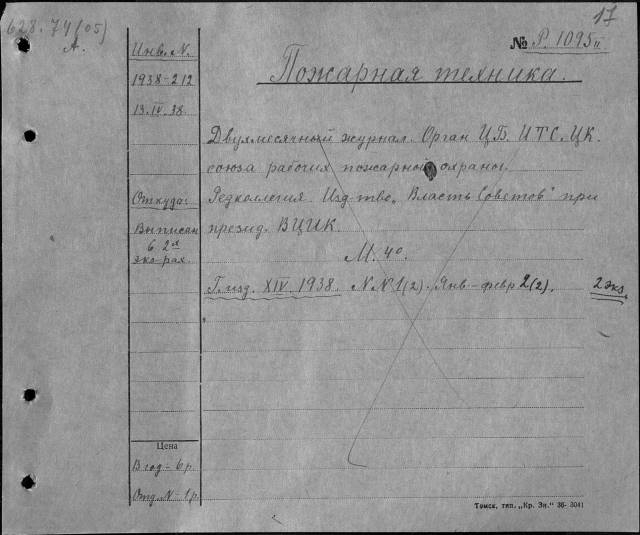 628.74(05)
А.
17
№ Р. 1095 II
Пожарная техника.
Инв. N.
1938-212
13.IV.38.
Откуда:
Выписан
в 2х
экз-рах.
Цена
В год - 6 р.
Отд. N - 1 р.
Двухмесячный журнал. Орган Ц.Б. И.Т.С. Ц.К.
союза рабочих пожарной охраны.
Редколлегия. Изд-тво „Власть Советов" при
презид. ВЦИК.
М. 4°.
Г. изд. XIV. 1938. N N 1(2). Янв-февр 2(2). 2 экз.
Томск, тип. „Кр. Зн." 36-3041